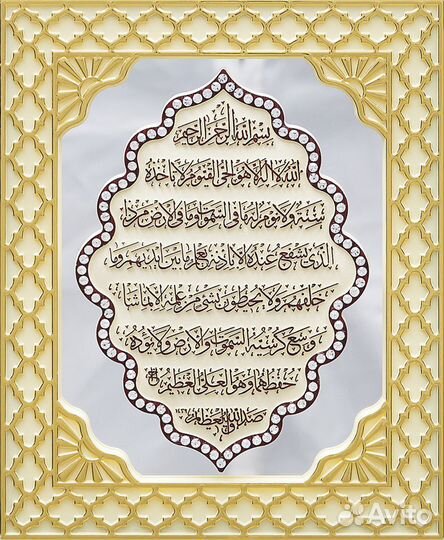 بسم الله الرحمن الرحيم
الله لا اله الا هو الحي القيوم لا تاخذه
سنة ولا نوم له ما في السموات وما في الارض من ذا
الذي يشفع عنده الا باذنه يعلم ما بين ايديهم وما
خلفهم ولا يحيطون بشيء من علمه الا بما شاء
وسع كرسيه السموات والارض ولا يؤده
حفظهما وهو العلي العظيم
صدق الله العظيم
Avito